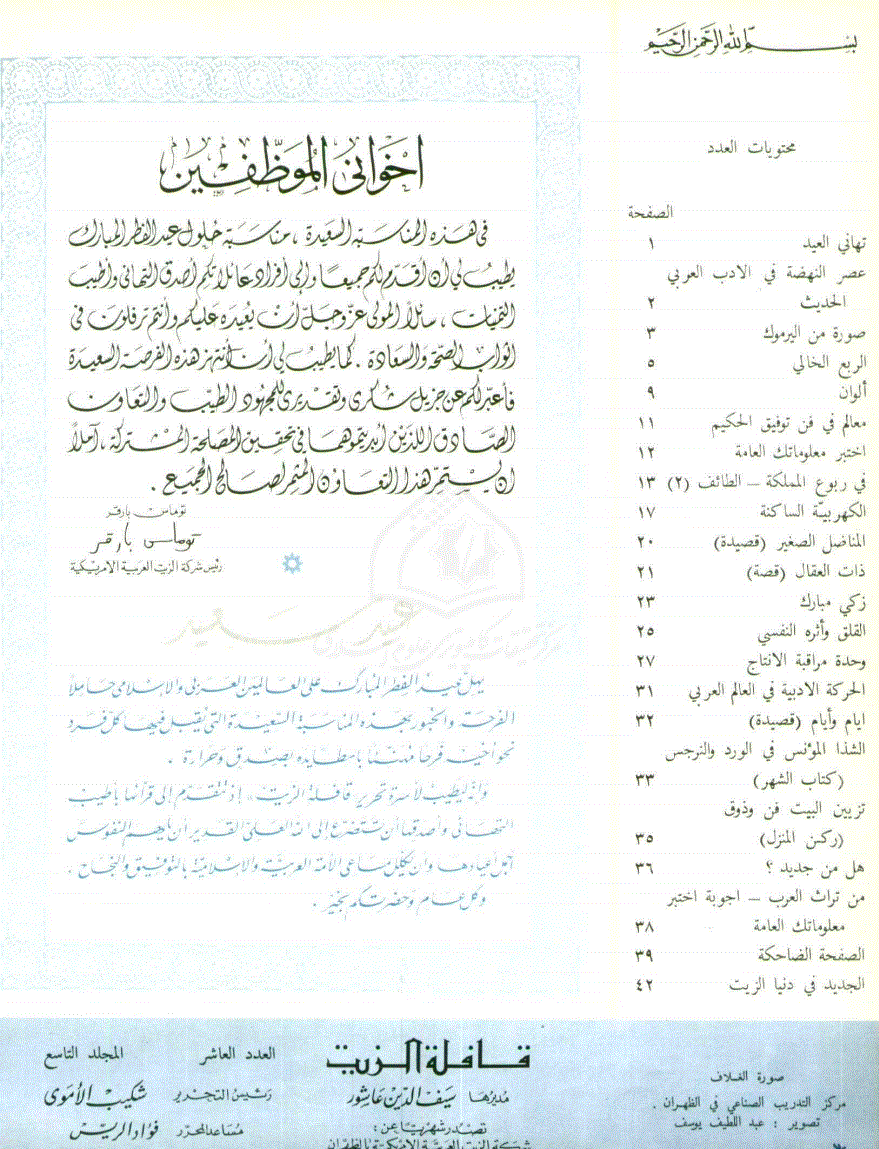 بسم الله الرحمن الرحيم
محتويات العدد
الصفحة
تهاني العيد ١
عصر النهضة في الادب العربي
الحديث ٢
صورة من اليرموك ٣
الربع الخالي ٥
ألوان ٩
معالم في فن توفيق الحكيم ١١
اختبر معلوماتك العامة ١٢
في ربوع المملكة – الطائف (٢) ١٣
الكهربيّة الساكنة ١٧
المناضل الصغير (قصيدة) ٢٠
ذات العقال (قصة) ٢١
زكي مبارك ٢٣
القلق وأثره النفسي ٢٥
وحدة مراقبة الانتاج ٢٧
الحركة الادبية في العالم العربي ٣١
ايام وأيام (قصيدة) ٣٢
الشذا المؤنس في الورد والنرجس
(كتاب الشهر) ٣٣
تزيين البيت فن وذوق
(ركن المنزل) ٣٥
هل من جديد ؟ ٣٦
من تراث العرب – اجوبة اختبر
معلوماتك العامة ٣٨
الصفحة الضاحكة ٣٩
الجديد في دنيا الزيت ٤٢
اخواني الموظفين
في هذه المناسبة السعيدة ، مناسبة حلول عيد الفطر المبارك
يطيب لي أن أقدم لكم جميعا وإلى أفراد عائلاتكم أصدق التهاني وأطيب
التمنيات ، سائلاً المولى عز وجل أن يعيده عليكم وأنتم ترفلون في
اثواب الصحة والسعادة . كما يطيب لي أن أنتهز هذه الفرصة السعيدة
فأعبر لكم عن جزيل شكري وتقديري للمجهود الطيب والتعاون
الصادق اللذين أبديتموهما في تحقيق المصلحة المشتركة ، آملاً
ان يستمر هذا التعاون المثمر لصالح الجميع .
توماس بارقر
توماس بارقر
رئيس شركة الزيت العربية الامريكية
عيد سعيد
يهل عيد الفطر المبارك على العالمين العربي والإسلامي حاملاً
الفرحة والحبور بهذه المناسبة السعيدة التي يقبل فيها كل فرد
نحو أخيه فرحا مهنئا باسطا يده بصدق وحرارة .
وانه ليطيب لأسرة تحرير قافلة الزيت ، إذ تتقدم إلى قرائها بأطيب
التهاني وأصدقها أن تتضرع إلى الله العلي القدير أن يلهم النفوس
أجل أعيادها وان يكلل مساعي الأمة العربية والاسلامية بالتوفيق والنجاح .
وكل عام وحضرتكم بخير .
صورة الغلاف
مركز التدريب الصناعي في الظهران .
تصوير : عبد اللطيف يوسف
قافلة الزيت
مديرها سيف الدين عاشور
تصدر شهريًا عن :
شركة الزيت العربية الامريكية بالظهران
العدد العاشر المجلد التاسع
رئيس التحرير شكيب الأموي
مساعد المحرر فؤاد الريس